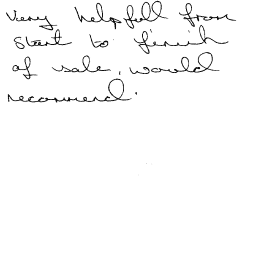 Very helpfull from
start to finish
of sale, would
recommend.